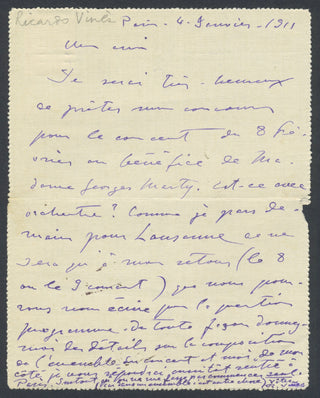 Ricardo Viñes Paris - 4 - Janvier - 1911
Mon ami
Je serai très heureux
de prêter mon concours
pour le concert du 8 Fé-
vrier au bénéfice de Ma-
dame Georges Marty. Est-ce avec
orchestre? Comme je pars de-
main pour Lausanne ce ne
sera qu'à mon retour (le 8
ou le 9 courant) que nous pour-
rons nous écrire pour la question
programme. De toute façon donnez-
moi des détails sur la composition
de l'ensemble du concert et moi, de mon
côté je vous répondrai aussitôt rentré à
Paris. Surtout que l'on ne me fasse pas commencer